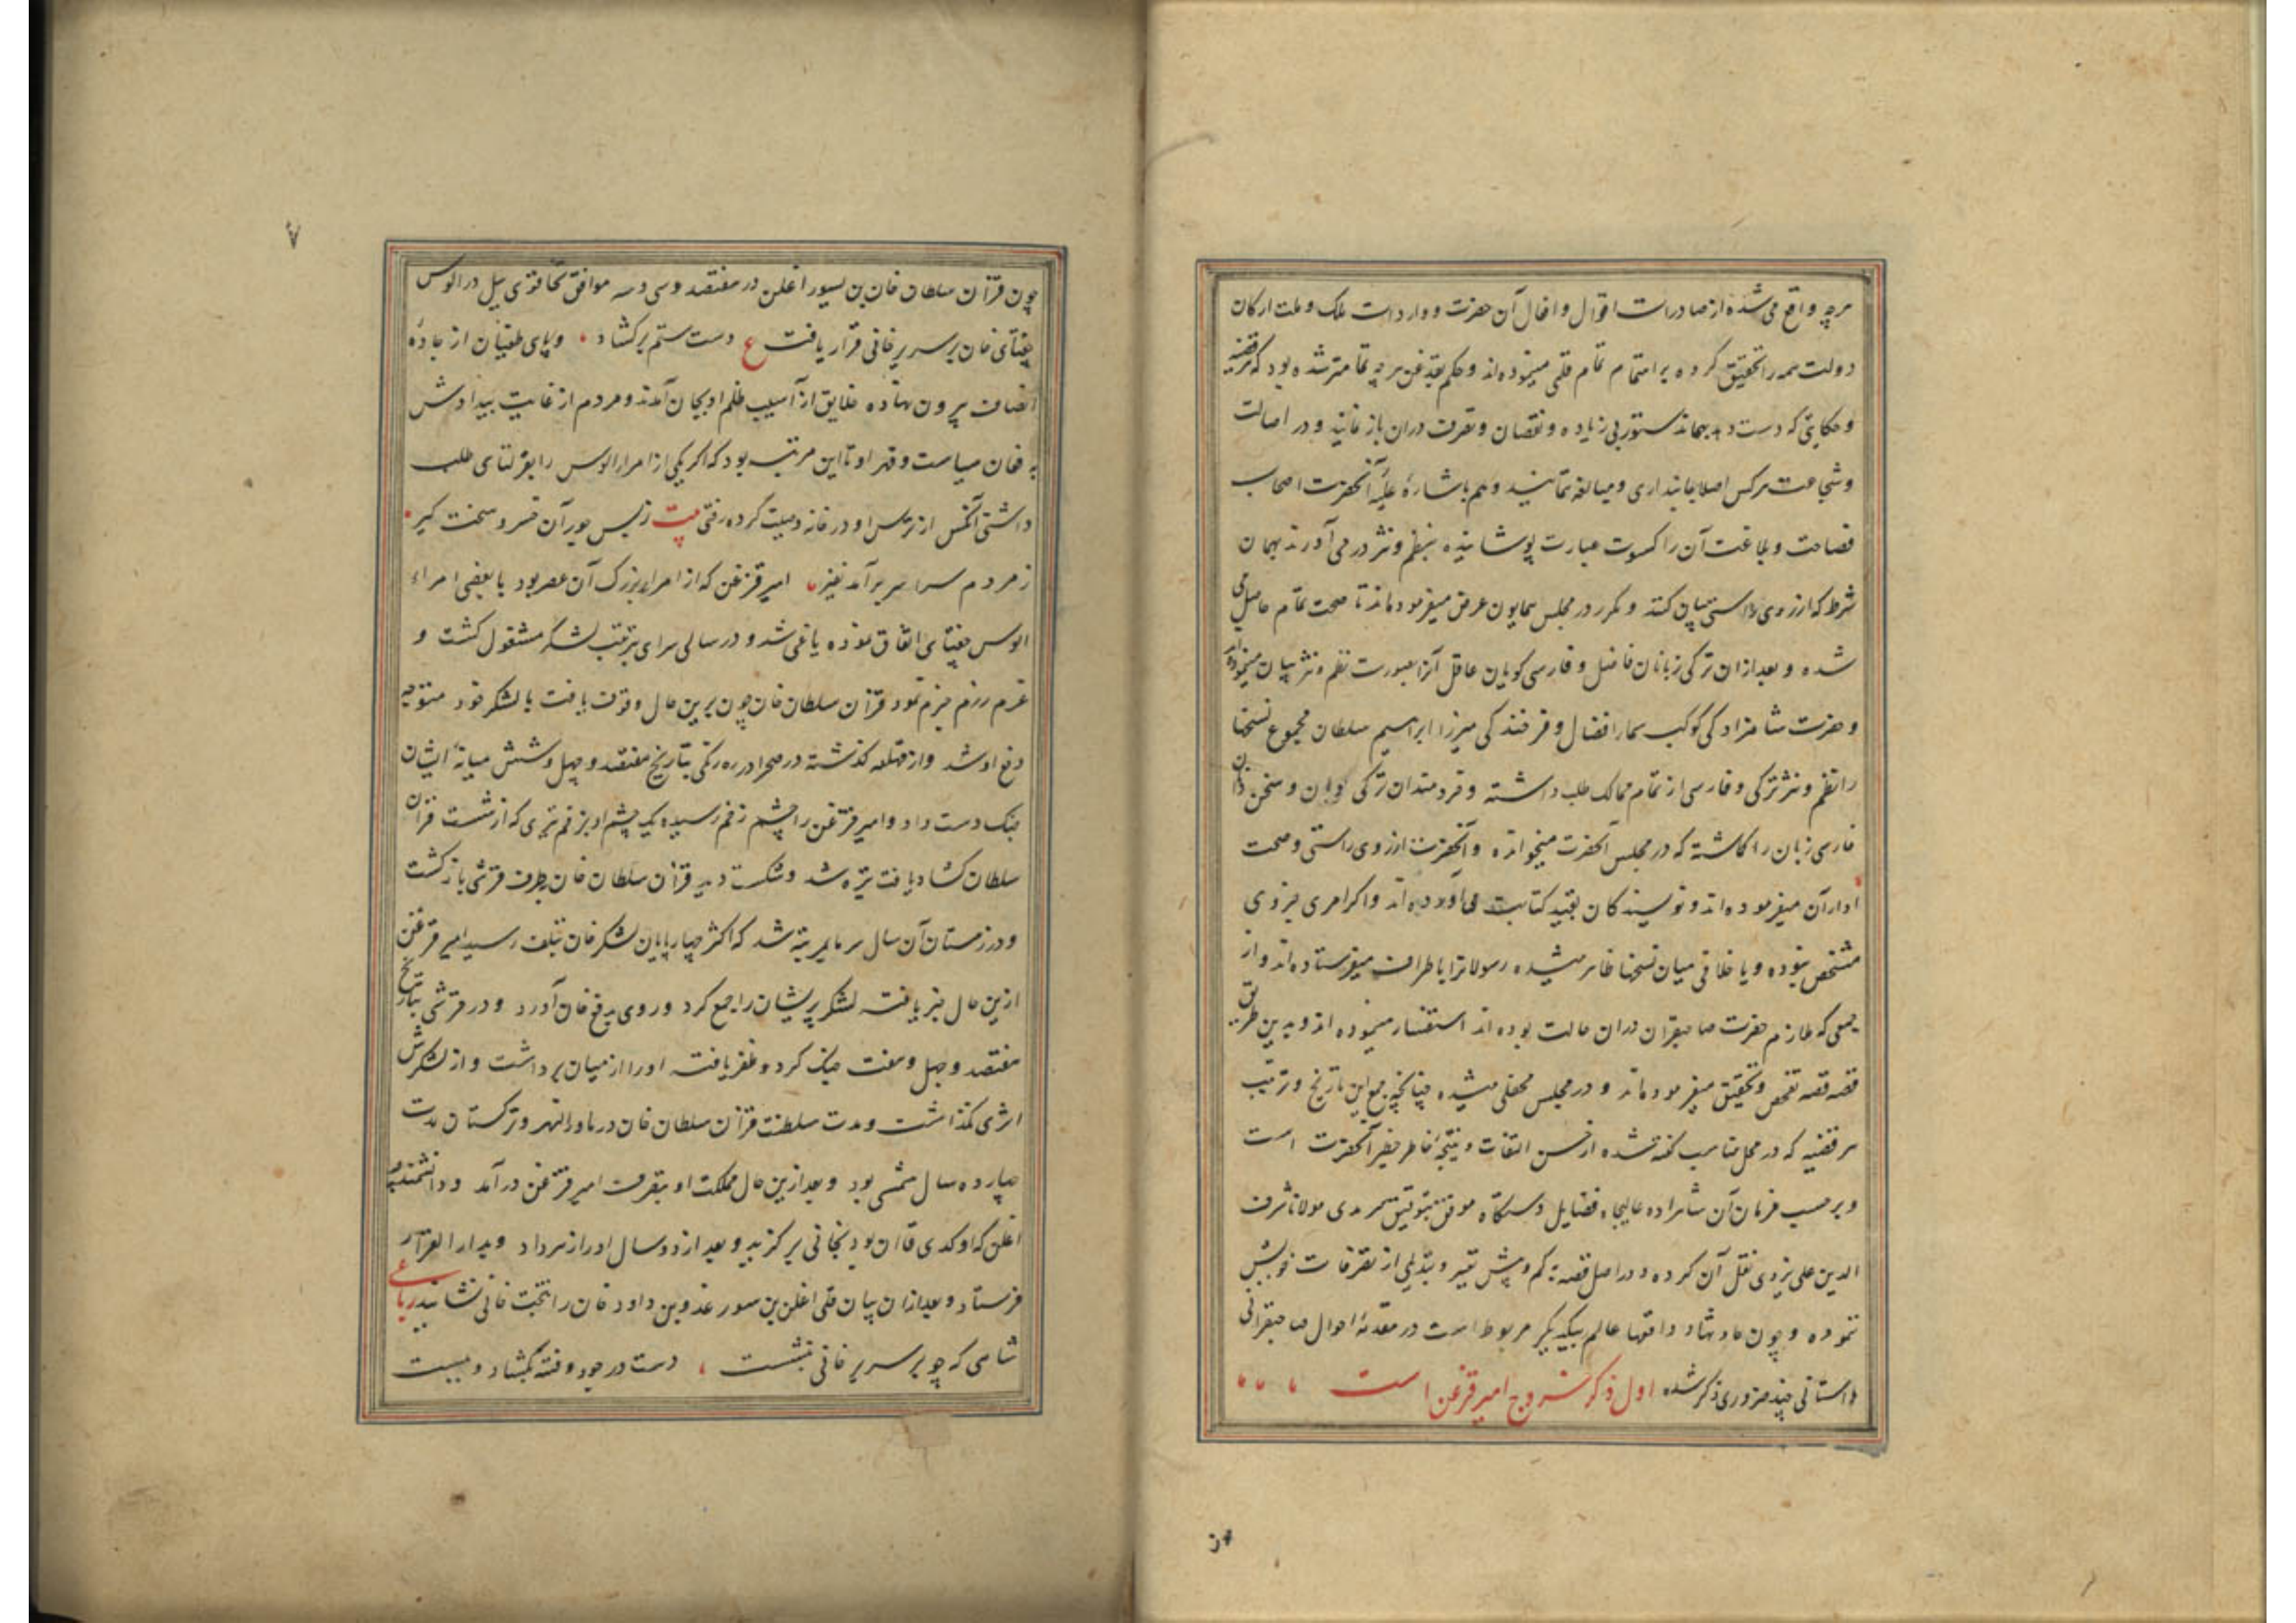 هرچه واقع می‌شده از صادرات اقوال و افعال آن حضرت و واردات ملک و ملت ارکان
دولت همه را تحقیق کرده بر اهتمام تمام قلمی مینموده‌اند و حکم بقدغن هرچه تمامتر شده بود که هر قضیه
و حکایتی که دست دهد بهمان دستور بی زیاده و نقصان و تصرف دران باز نمایند و در اصالت
و شجاعت هرکس اصلا جانبداری و مبالغه ننمایند و هم باشارهٔ علیهٔ آنحضرت اصحاب
فصاحت و بلاغت آن را کسوت عبارت پوشانیده بنظم و نثر در می‌آورند بهمان
شرط که از روی راستی بیان کنند و مکرر در مجلس همایون عرض میفرموده‌اند تا صحت تمام حاصل می
شده و بعد ازان ترکی زبانان فاضل و فارسی گویان عاقل آنرا بصورت نظم و نثر بیان مینموده‌اند
و حضرت شاهزادگی کوکب سما افضال و فرخندگی میرزا ابراهیم سلطان مجموع نسخها
را نظم و نثر ترکی و فارسی از تمام ممالک طلب داشته و خردمندان ترکی گویان و سخن دانان
فارسی زبان را گماشته که در مجلس آنحضرت میخوانده و آنحضرت از روی راستی و صحت
ادا آن میفرموده‌اند و نویسندگان بقید کتابت می‌آورده‌اند و اگر امری جزوی
مشخص نبوده و یا خلافی میان نسخها ظاهر میشده رسولانرا باطراف میفرستاده‌اند و از
جمعی که ملازم حضرت صاحبقران دران حالت بوده‌اند استفسار مینموده‌اند و بدین طریق
قصه قصه تفحص و تحقیق میفرموده‌اند و در مجلس محفلی میشده چنانچه جمع این تاریخ و ترتیب
هر قضیه که در محل مناسب گفته شده از حسن التفات و نتیجهٔ خاطر خطیر آنحضرت است
و برحسب فرمان آن شاهزاده عالیجاه فضایل دستگاه موفق بتوفیق سرمدی مولانا شرف
الدین علی یزدی نقل آن کرده و در اصل قصه بکم و بیش تغییر و تبدیلی از تصرفات خویش
ننموده و چون حادثها و واقعها عالم بیکدیگر مربوط است در مقدمهٔ احوال صاحبقرانی
داستانی چند ضروری ذکر شده اول ذکر خروج امیر قزغن است
چون
۷
چون قزان سلطان خان بن یسور اغلن در هفتصد و سی و سه موافق تخاقوی ییل در الوس
جغتای خان بر سریر خانی قرار یافت ع دست ستم برگشاد و پای طغیان از جادهٔ
انصاف بیرون نهاده خلایق از آسیب ظلم او بجان آمدند و مردم از غایت بیدادش
به فغان سیاست و قهر او تا این مرتبه بود که اگر یکی از امرا الوس را بقرلتای طلب
داشتی آنکس از ترس او در خانه وصیت کرده رفتی بیت ز بس جور آن خسرو سخت گیر
ز مردم سراسر برآمد نفیر امیر قزغن که از امراء بزرگ آن عصر بود با بعضی امراء
الوس جغتای اتفاق نموده یاغی شد و در سالی سرای بترتیب لشکر مشغول گشت و
عزم رزم جزم نمود قزان سلطان خان چون برین حال وقوف یافت با لشکر خود متوجه
دفع او شد و از قهلغه گذشته در صحرا دره زنگی بتاریخ هفتصد و چهل و شش میانهٔ ایشان
جنگ دست داد و امیر قزغن را چشم زخم رسیده یک چشم او بزخم تیری که از شست قزان
سلطان گشاد یافت تیره شد و شکست دید قزان سلطان خان بطرف قرشی بازگشت
و در زمستان آن سال سرما بمرتبهٔ شد که اکثر چهارپایان لشکر خان تلف رسید امیر قزغن
ازین حال خبر یافت لشکر پریشان را جمع کرد و روی بدفع خان آورد و در قرشی بتاریخ
هفتصد و چهل و هفت جنگ کرد و ظفر یافت او را از میان برداشت و از لشکرش
اثری نگذاشت و مدت سلطنت قزان سلطان خان در ماوراءالنهر و ترکستان مدت
چهارده سال شمسی بود و بعد ازین حال مملکت او بتصرف امیر قزغن درآمد و دانشمندچه
اغلن که اوکدی قاان بود بخانی برگزید و بعد از دو سال او را از سر داد و بدار القرار
فرستاد و بعد ازان بیان قلی اغلن بن سور غدو بن داود خان را بتخت خانی نشانید رباعی
شاهی که چو بر سریر خانی بنشست دست در جود و فتنه بگشاد و ببست